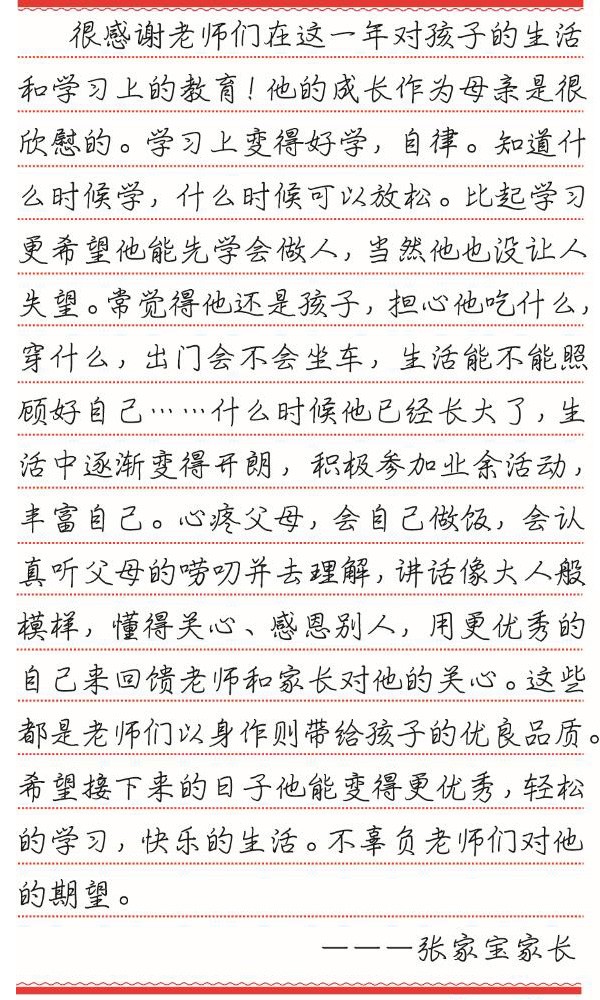 很感谢老师们在这一年对孩子的生活
和学习上的教育！他的成长作为母亲是很
欣慰的。学习上变得好学，自律。知道什
么时候学，什么时候可以放松。比起学习
更希望他能先学会做人，当然他也没让人
失望。常觉得他还是孩子，担心他吃什么，
穿什么，出门会不会坐车，生活能不能照
顾好自己……什么时候他已经长大了，生
活中逐渐变得开朗，积极参加业余活动，
丰富自己。心疼父母，会自己做饭，会认
真听父母的唠叨并去理解，讲话像大人般
模样，懂得关心、感恩别人，用更优秀的
自己来回馈老师和家长对他的关心。这些
都是老师们以身作则带给孩子的优良品质。
希望接下来的日子他能变得更优秀，轻松
的学习，快乐的生活。不辜负老师们对他
的期望。
———张家宝家长